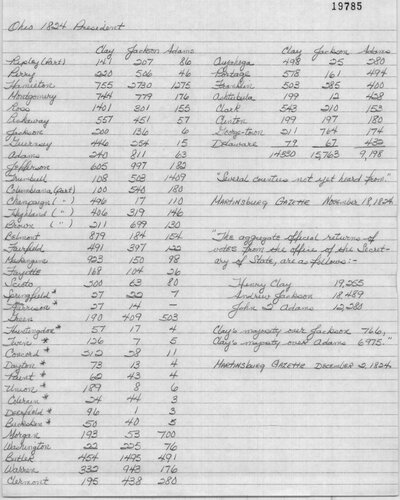 19785
Ohio 1824 President
Clay Jackson Adams
Ripley (Part) 141 207 86
Perry 220 506 46
Hamilton 755 2730 1275
Montgomery 744 779 176
Ross 1401 301 155
Pickaway 557 451 57
Jackson 200 136 6
Guernsey 446 254 15
Adams 240 811 63
Jefferson 605 997 180
Trumbull 103 503 1409
Columbiana (Part) 100 540 180
Champaign ( " ) 496 17 110
Highland ( " ) 406 319 146
Brown ( " ) 211 699 130
Belmont 879 184 154
Fairfield 491 397 122
Muskingum 923 150 98
Fayette 168 104 26
Scioto 300 63 80
Springfield * 57 22 7
Harrison * 27 14 -
Green 190 409 503
Huntingdon * 57 17 4
Twin * 126 7 5
Concord * 212 28 11
Dayton * 73 13 4
Paint * 62 43 4
Union * 189 8 6
Colerain * 24 44 3
Deerfield * 96 1 3
Buckskin * 50 40 5
Morgan 193 53 700
Washington 22 225 76
Butler 454 1495 491
Warren 332 943 176
Clermont 195 438 280
Clay Jackson Adams
Cuyahoga 498 25 280
Portage 578 161 494
Franklin 503 285 400
Ashtabula 199 12 428
Clark 543 210 153
Clinton 199 197 180
Georgetown 211 764 174
Delaware 79 67 432
14330 15,763 9,198
"Several counties not yet heard from."
Martinsburg Gazette November 18, 1824
"The aggregate official returns of
votes from the office of the Secret-
ary of State, are as follows:-
Henry Clay 19,255
Andrew Jackson 18,489
John Q Adams 12,280
Clay's majority over Jackson 766,
Clay's majority over Adams 6975."
Martinsburg Gazette December 2, 1824